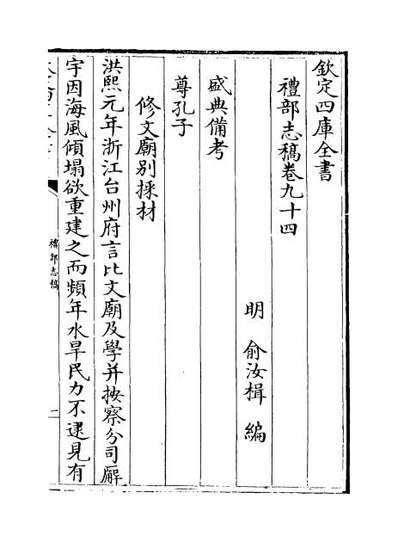 欽定四庫全書
禮部志稿卷九十四
明 俞汝楫 編
盛典備考
尊孔子
修文廟别採材
洪熙元年浙江台州府言比文廟及學并按察分司廨
宇因海風傾塌欲重建之而頻年水旱民力不逮見有
禮部志稿